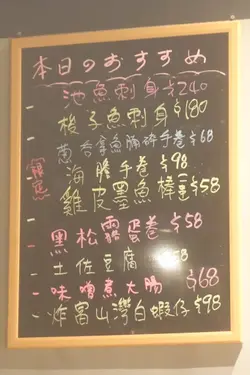 本日のおすすめ
池魚刺身 $240
梭子魚刺身 $180
蔥吞拿魚腩碎手卷 $68
海膽手卷 $98
雞皮墨魚棒 $58
黑松露蛋卷 $58
土佐豆腐 $58
味噌煮大腸 $68
炸富山灣白蝦仔 $98